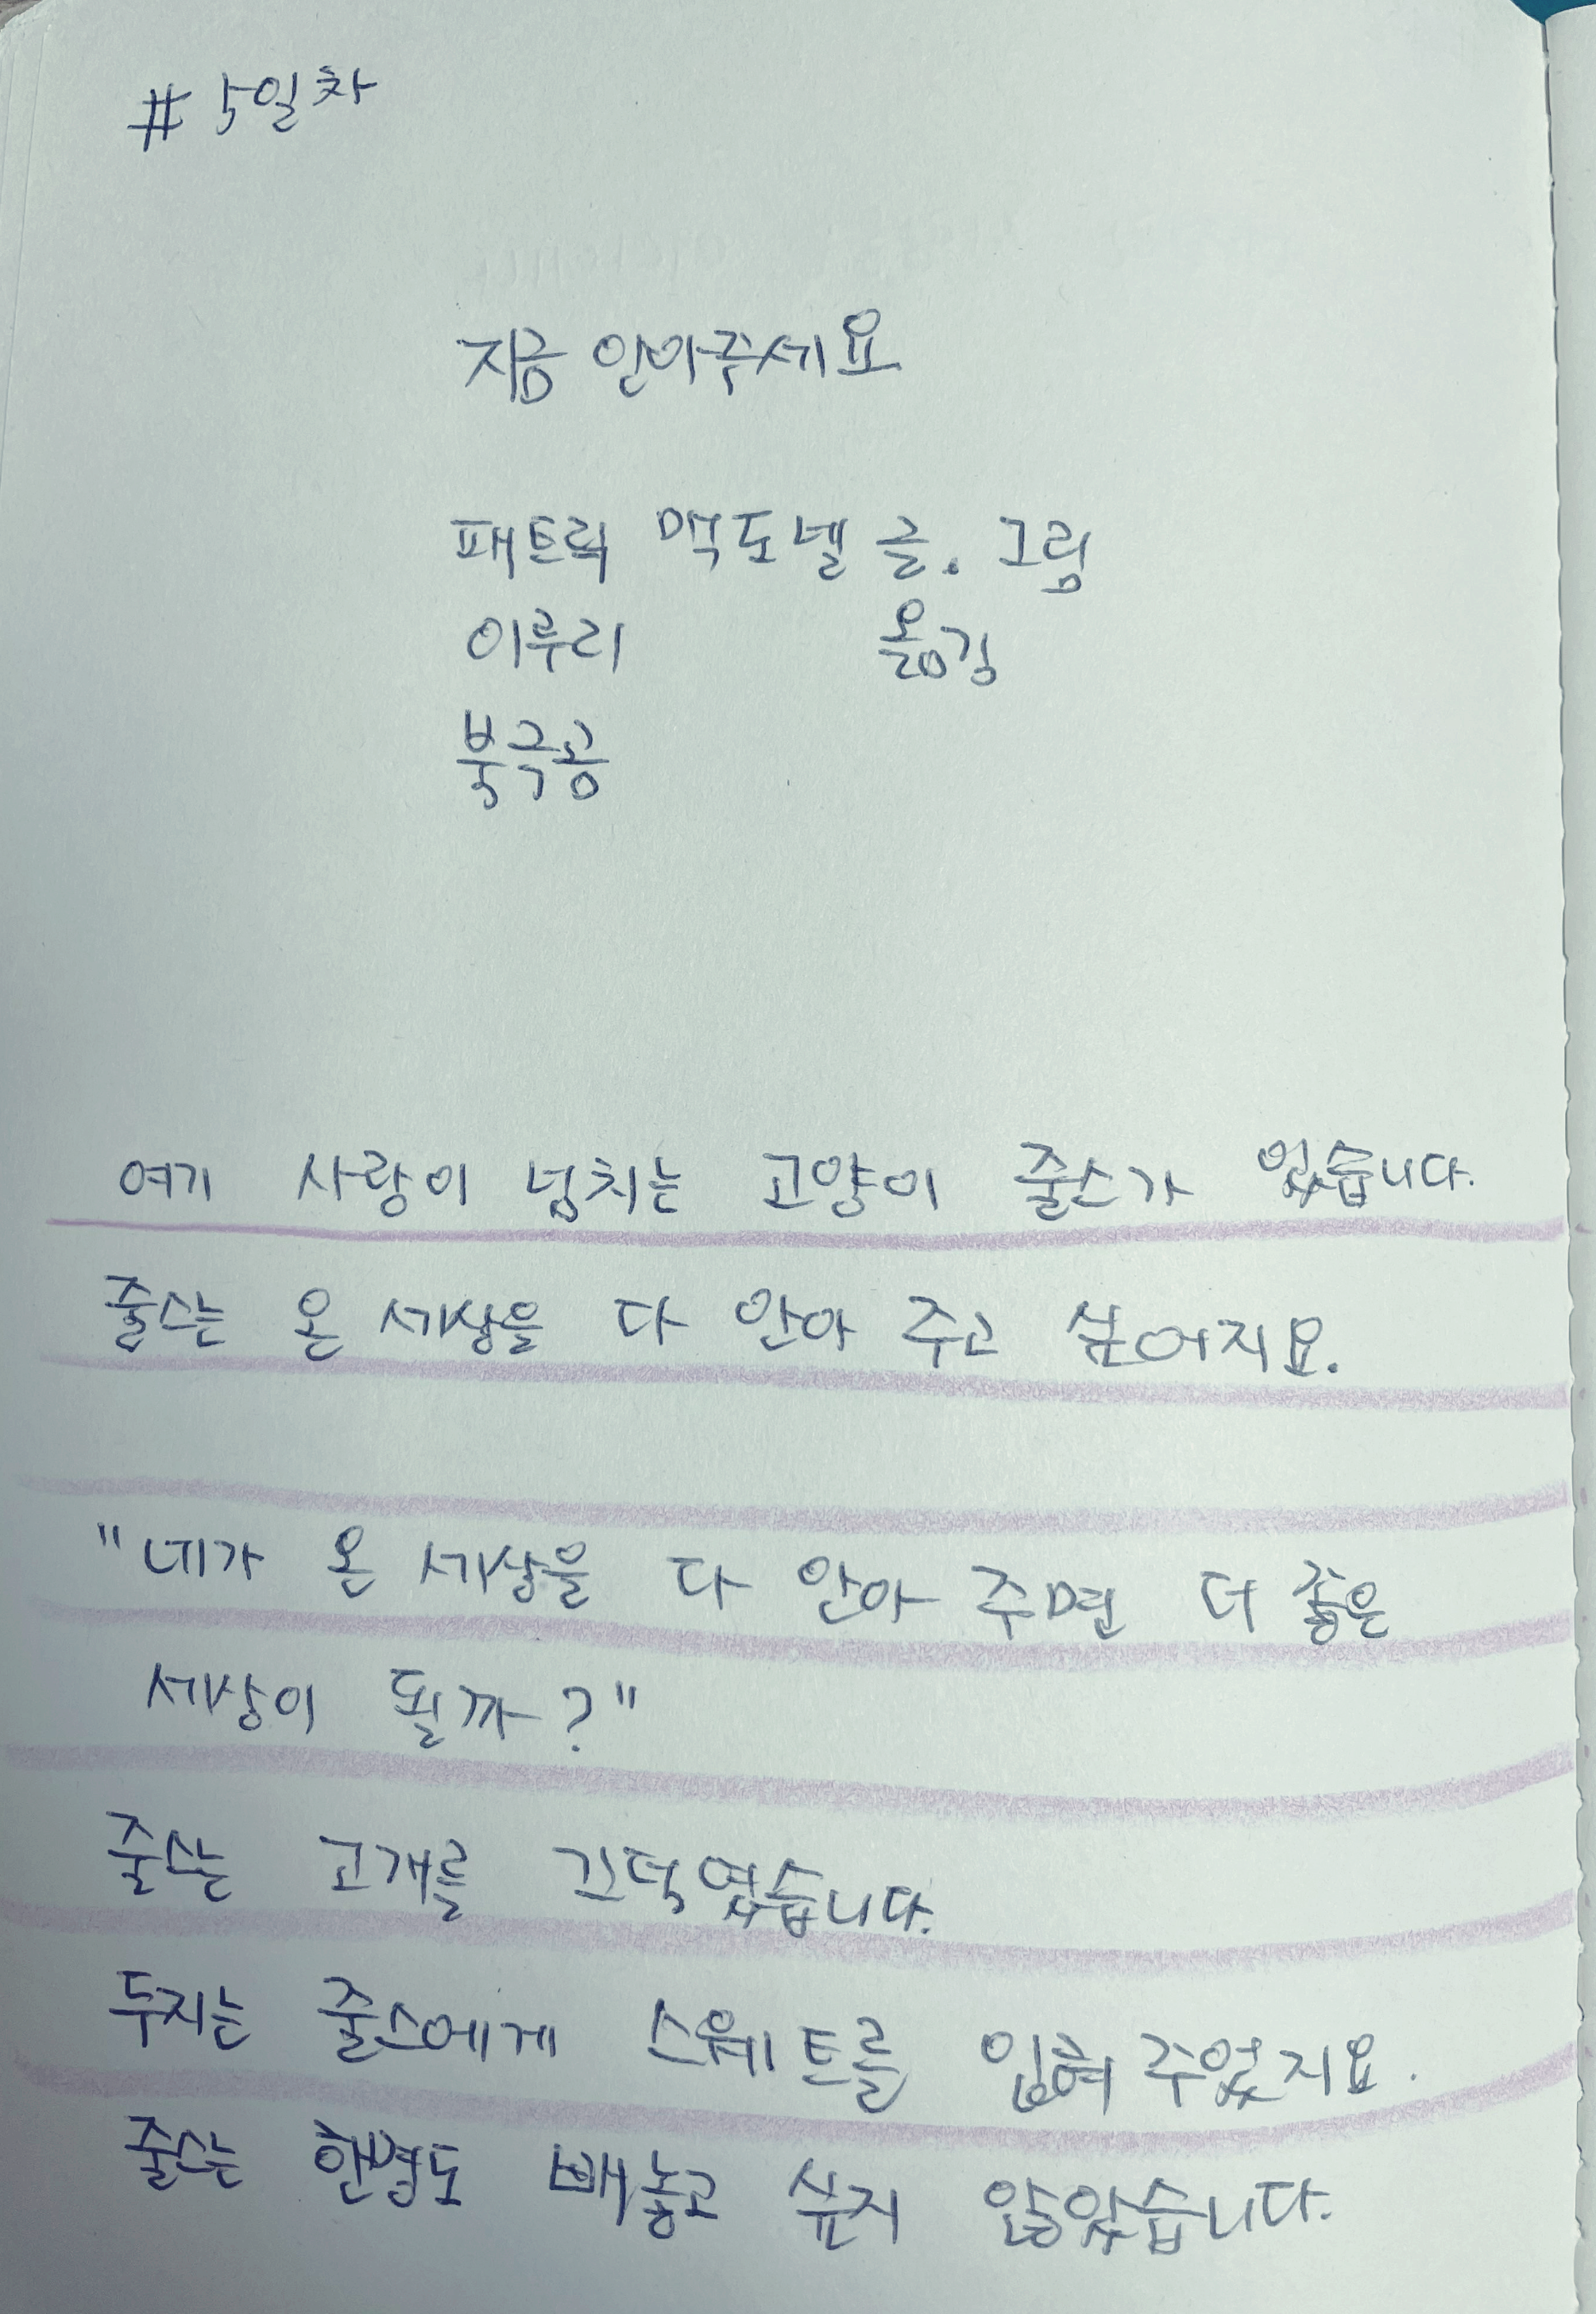 # 5일차
지금 안아주세요
패트릭 맥도넬 글. 그림
이루리 옮김
북극곰
여기 사랑이 넘치는 고양이 줄스가 있습니다.
줄스는 온 세상을 다 안아 주고 싶어지요.
"네가 온 세상을 다 안아 주면 더 좋은
세상이 될까?"
줄스는 고개를 끄덕였습니다.
두지는 줄스에게 스웨트를 입혀 주었지요.
줄스는 한명도 빼놓고 싶지 않았습니다.